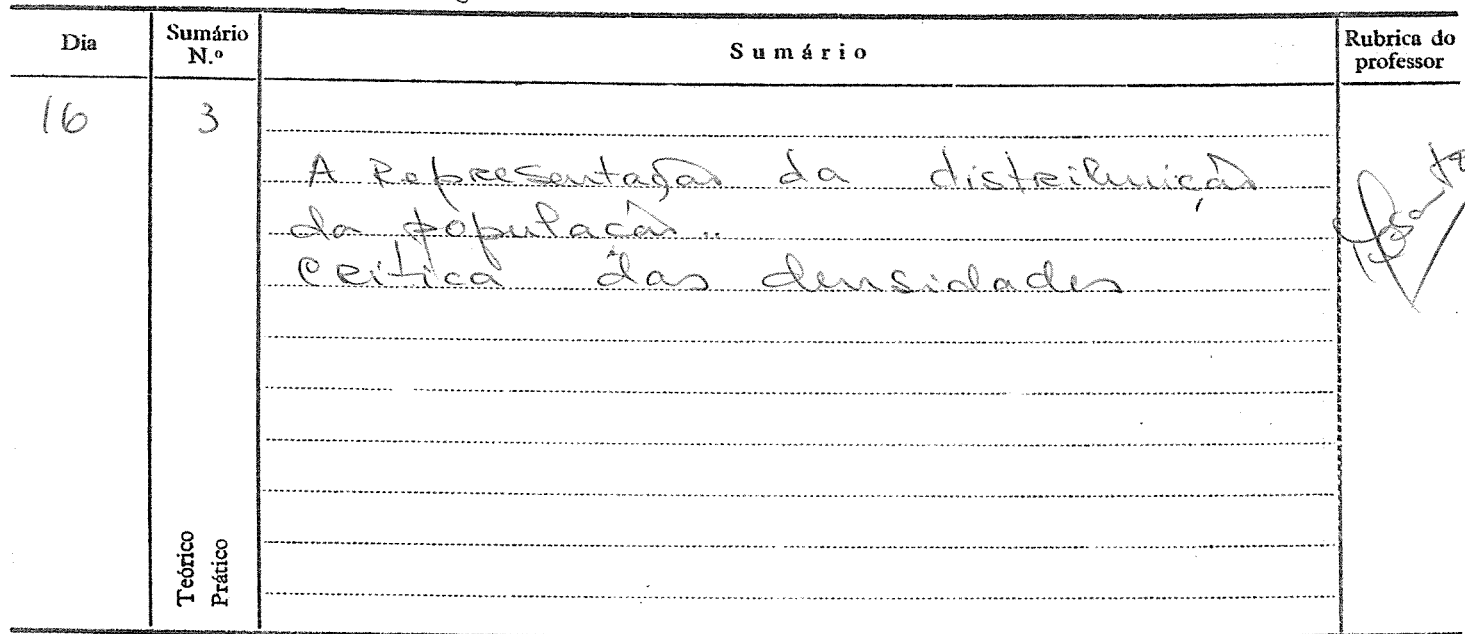 Dia
Sumário N.º
Sumário
Rubrica do professor
16
3
A Representação da distribuição
da população..
Crítica das densidades
Teórico
Prático